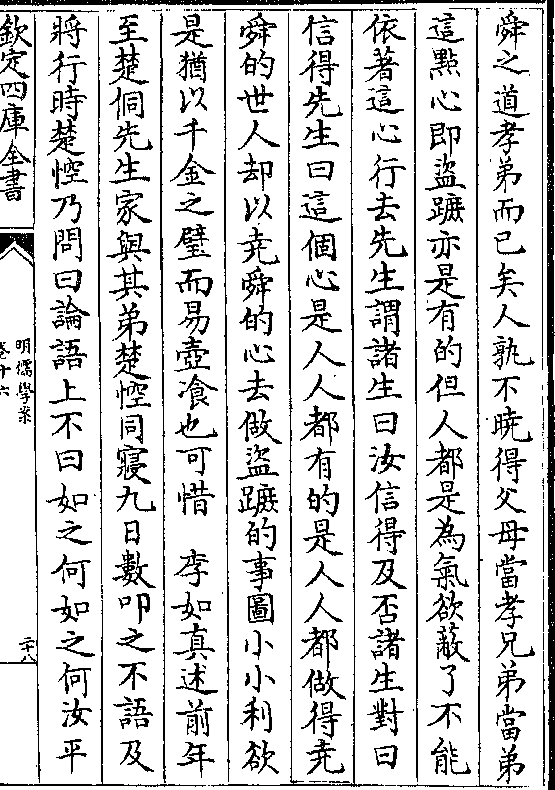 舜之道孝弟而已矣人孰不曉得父母當孝兄弟當弟
這點心即盜蹠亦是有的但人都是為氣欲蔽了不能
依著這心行去先生謂諸生曰汝信得及否諸生對曰
信得先生曰這個心是人人都有的是人人都做得堯
舜的世人却以堯舜的心去做盜蹠的事圖小小利欲
是猶以千金之璧而易壺飡也可惜　李如真述前年
至楚侗先生家與其弟楚倥同寢九日數叩之不語及
將行時楚倥乃問曰論語上不曰如之何如之何汝平
欽定四庫全書
明儒學案
卷十六
二十八